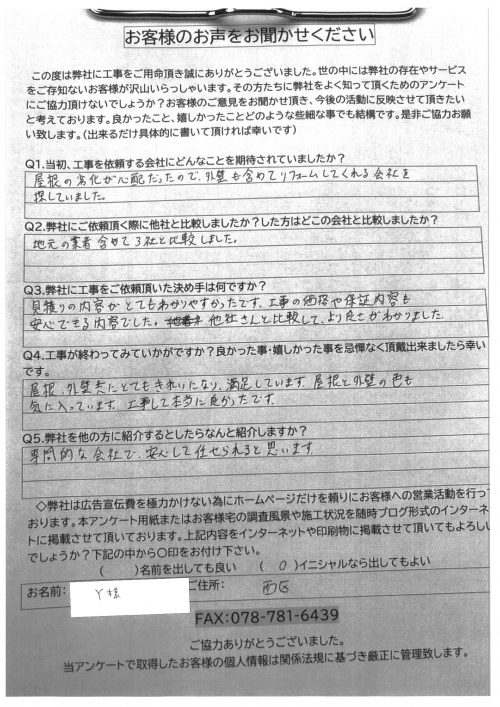 お客様のお声をお聞かせください
この度は弊社に工事をご用命頂き誠にありがとうございました。世の中には弊社の存在やサービス
をご存知ないお客様が沢山いらっしゃいます。そんな方たちに弊社をよく知って頂くためのアンケート
にご協力頂けないでしょうか？お客様のご意見をお聞かせ頂き、今後の活動に反映させて頂きたい
と考えております。良かったこと、嬉しかったことどのような些細な事でも結構です。是非ご協力お願
い致します。（出来るだけ具体的に書いて頂ければ幸いです）
Q1.当初、工事を依頼する会社にどんなことを期待されていましたか？
屋根の劣化が心配だったので、外壁も含めてリフォームしてくれる会社を
探していました。
Q2.弊社にご依頼頂く際に他社と比較しましたか？した方はどこの会社と比較しましたか？
地元の業者含めて3社と比較しました。
Q3.弊社に工事をご依頼頂いた決め手は何ですか？
見積りの内容がとてもわかりやすかったです、工事の価格や保証内容も
安心できる内容でした。他社さんと比較して、より良さがわかりました。
Q4.工事が終わってみていかがですか？良かった事・嬉しかった事を忌憚なく頂戴出来ましたら幸い
です。
屋根、外壁共にとてもきれいになり、満足しています。屋根と外壁の色も
気に入っています。工事して本当に良かったです。
Q5.弊社を他の方に紹介するとしたらなんと紹介しますか？
専門的な会社で、安心して任せられると思います
◇弊社は広告宣伝費を極力かけない為にホームページだけを頼りにお客様への営業活動を行っ
ております。本アンケート用紙またはお客様宅の調査風景や施工状況を随時ブログ形式のインターネ
トに掲載させて頂いております。上記内容をインターネットや印刷物に掲載させて頂いてもよろしい
でしょうか？下記の中から〇印をお付け下さい。
（　）名前を出しても良い　（ 〇 ）イニシャルなら出してもよい
お名前： Y様 ご住所： 西区
FAX：078-781-6439
ご協力ありがとうございました。
当アンケートで取得したお客様の個人情報は関係法規に基づき厳正に管理致します。